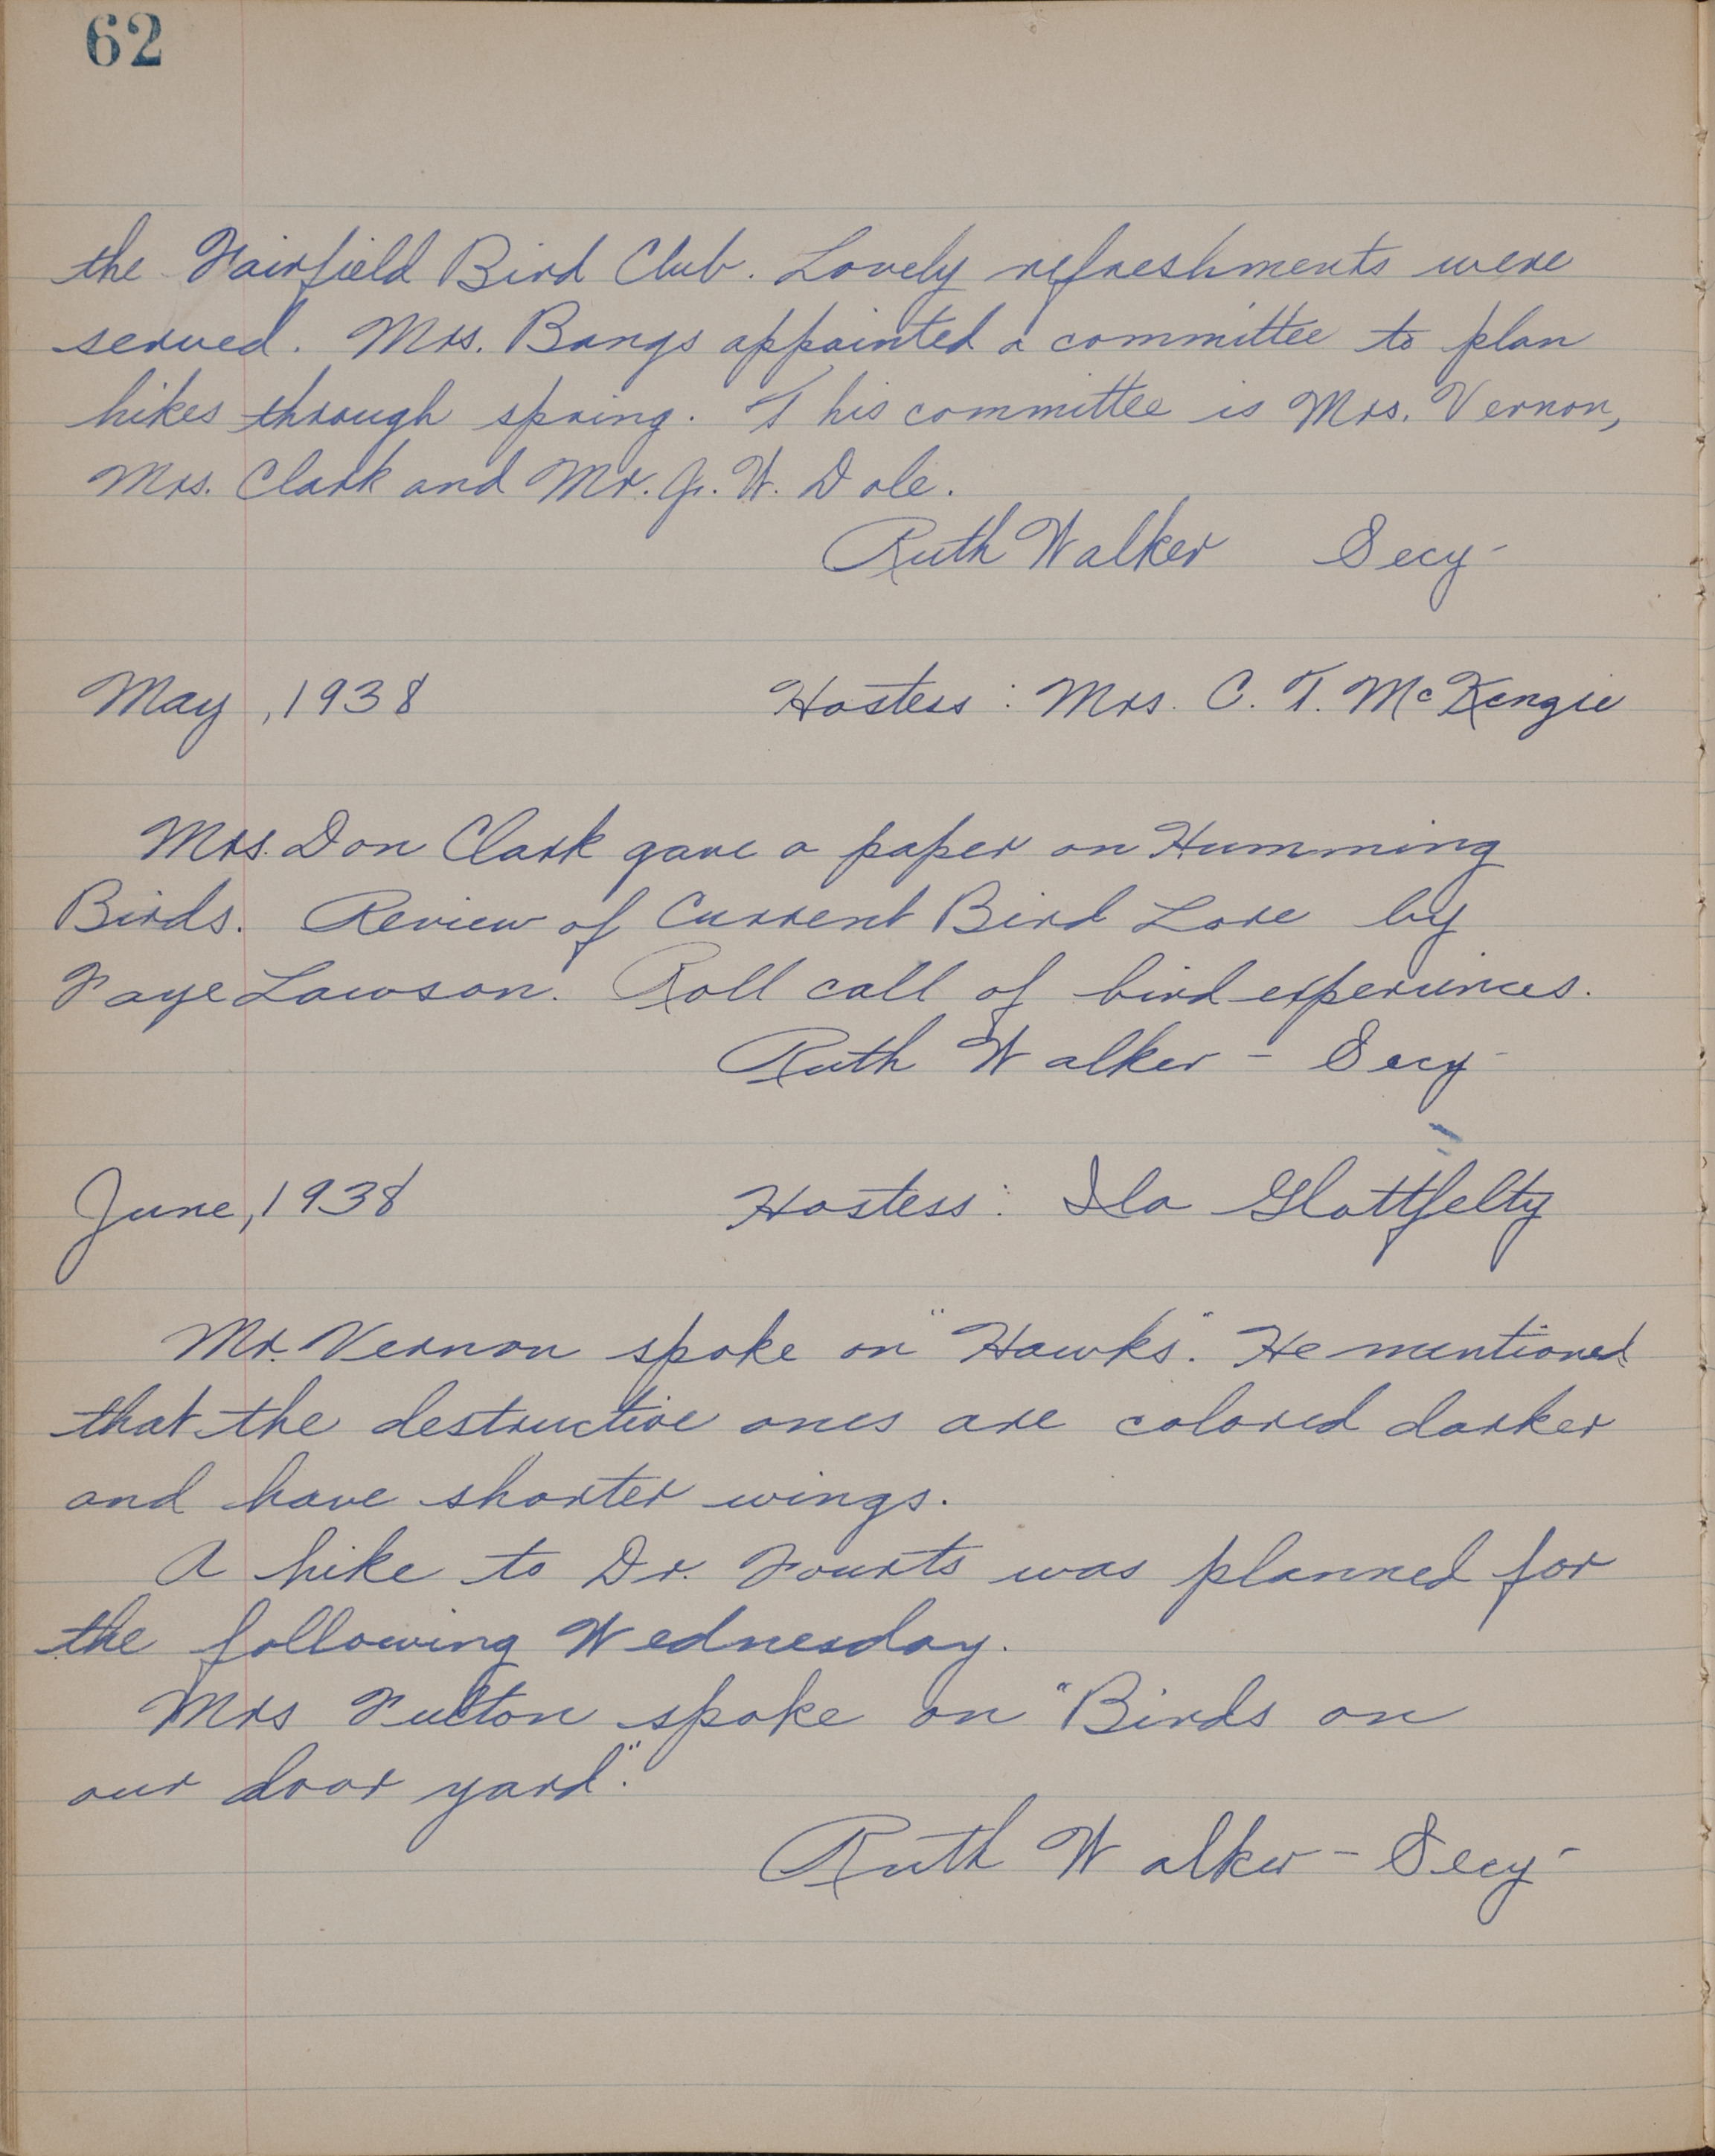 62
the Fairfield Bird Club. Lovely refreshments were
served. Mrs. Bangs appointed a committee to plan
hikes through spring. This committee is Mrs. Vernon,
Mrs. Clark and Mr. J. W. Dole.
Ruth Walker Secy-
May, 1938 Hostess: Mrs. C. T. McKenzie
Mrs. Don Clark gave a paper on Humming
Birds. Review of Current Bird Lore by
Faye Lawson. Roll call of bird experiences.
Ruth Walker - Secy-
June, 1938 Hostess: Ila Glattfelty
Mr. Vernon spoke on "Hawks". He mentioned
that the destructive ones are colored darker
and have shorter wings.
A hike to Dr. Fourts was planned for
the following Wednesday.
Mrs Fulton spoke on "Birds on
our door yard."
Ruth Walker - Secy-